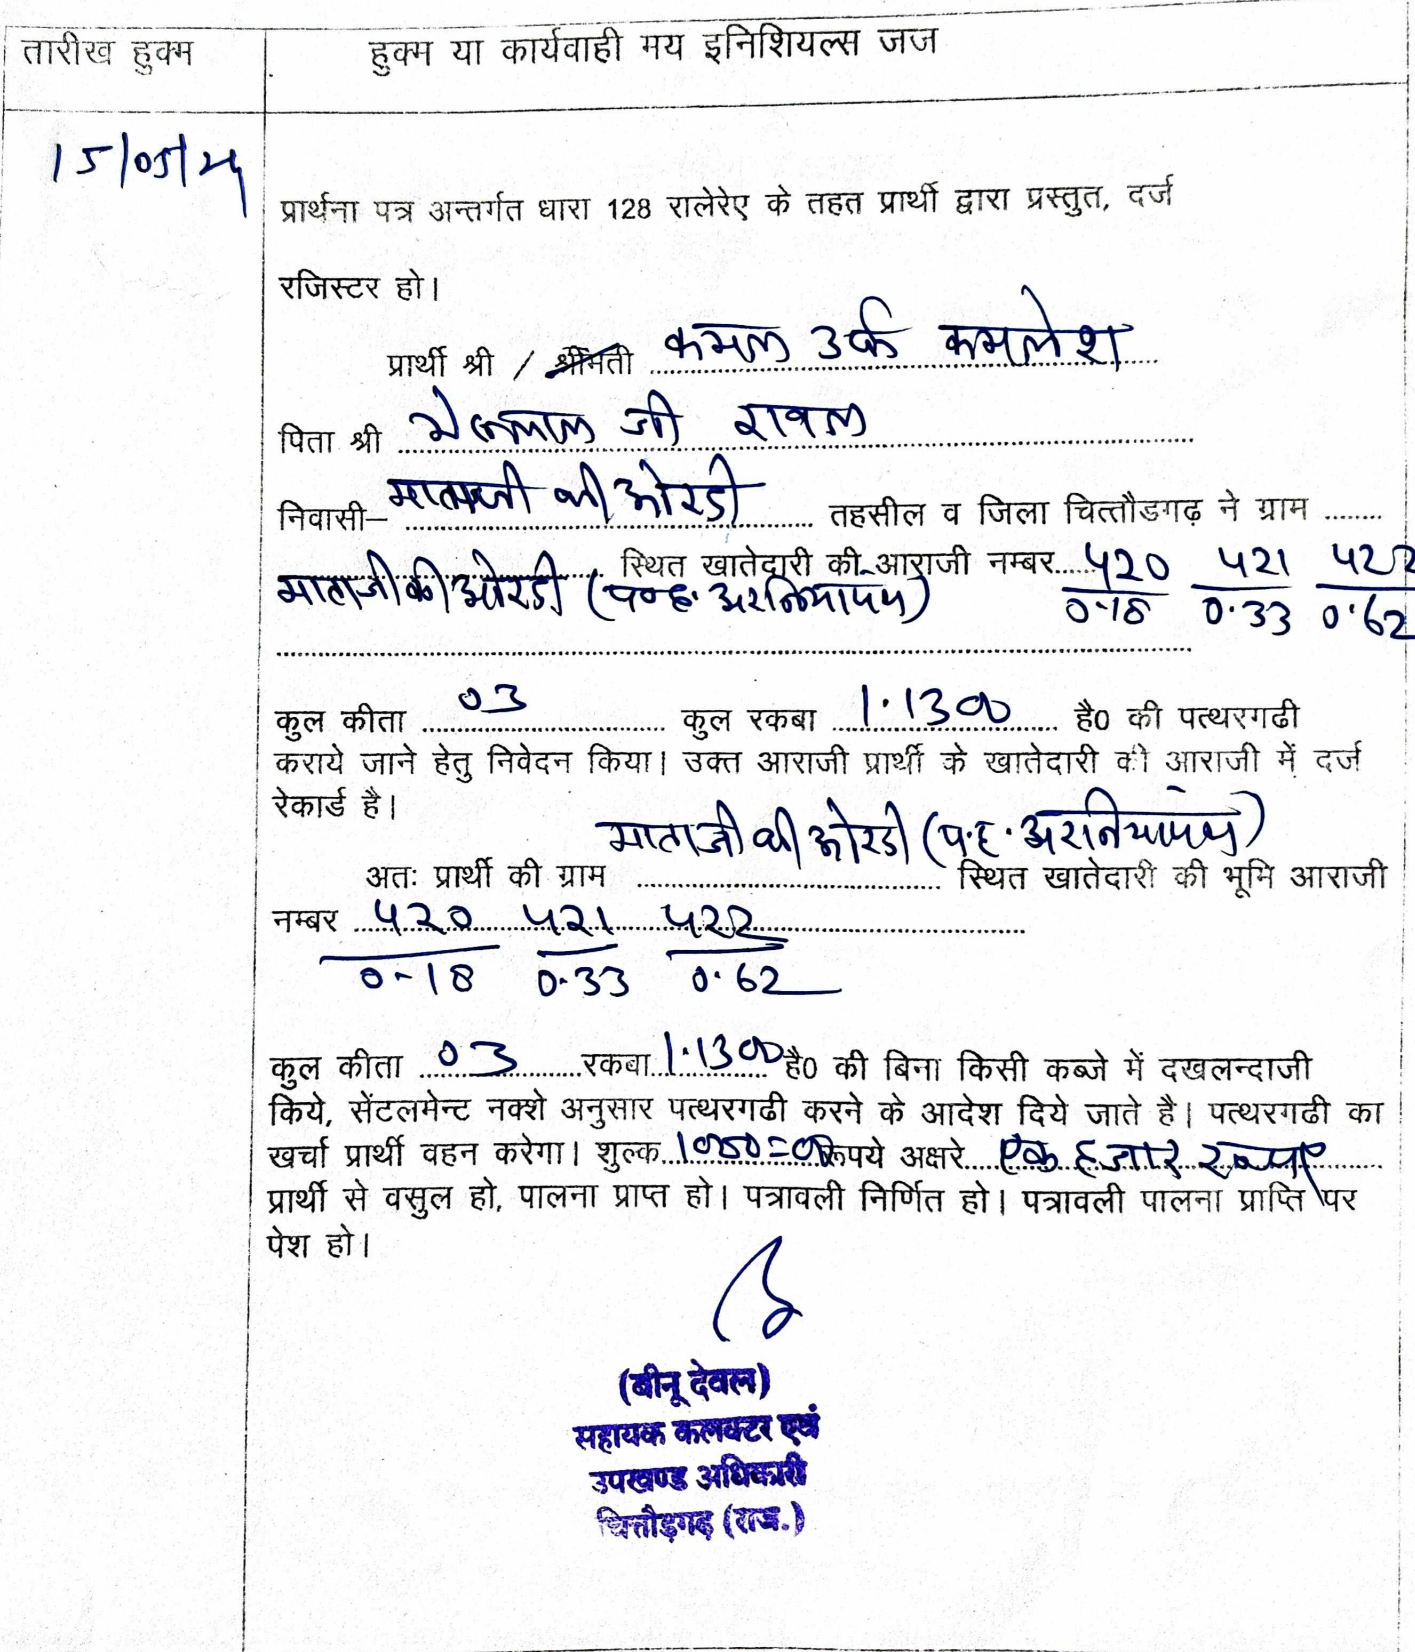 तारीख हुक्म
हुक्म या कार्यवाही मय इनिशियल्स जज
15/05/24
प्रार्थना पत्र अन्तर्गत धारा 128 रालेरेए के तहत प्रार्थी द्वारा प्रस्तुत, दर्ज
रजिस्टर हो।
प्रार्थी श्री / श्रीमती कमल उर्फ कमलेश
पिता श्री जी रावल
निवासी– माताजी की ओरडी तहसील व जिला चित्तौडगढ़ ने ग्राम ........
स्थित खातेदारी की आराजी नम्बर 420 421 422
माताजी की ओरडी (प०ह० अरनियापंथ) 0.18 0.33 0.62
कुल कीता 03 कुल रकबा 1.1300 है0 की पत्थरगढी
कराये जाने हेतु निवेदन किया। उक्त आराजी प्रार्थी के खातेदारी की आराजी में दर्ज
रेकार्ड है।
माताजी की ओरडी (प.ह. अरनियापंथ)
अतः प्रार्थी की ग्राम ........ स्थित खातेदारी की भूमि आराजी
नम्बर 420 421 422
0-18 0.33 0.62
कुल कीता 03 रकबा 1.1300 है0 की बिना किसी कब्जे में दखलन्दाजी
किये, सेंटलमेन्ट नक्शे अनुसार पत्थरगढी करने के आदेश दिये जाते है। पत्थरगढी का
खर्चा प्रार्थी वहन करेगा। शुल्क 1000=00 रूपये अक्षरे एक हजार रूपया
प्रार्थी से वसुल हो, पालना प्राप्त हो। पत्रावली निर्णित हो। पत्रावली पालना प्राप्ति पर
पेश हो।
(बीनू देवल)
सहायक कलक्टर एवं
उपखण्ड अधिकारी
चित्तौड़गढ़ (राज.)